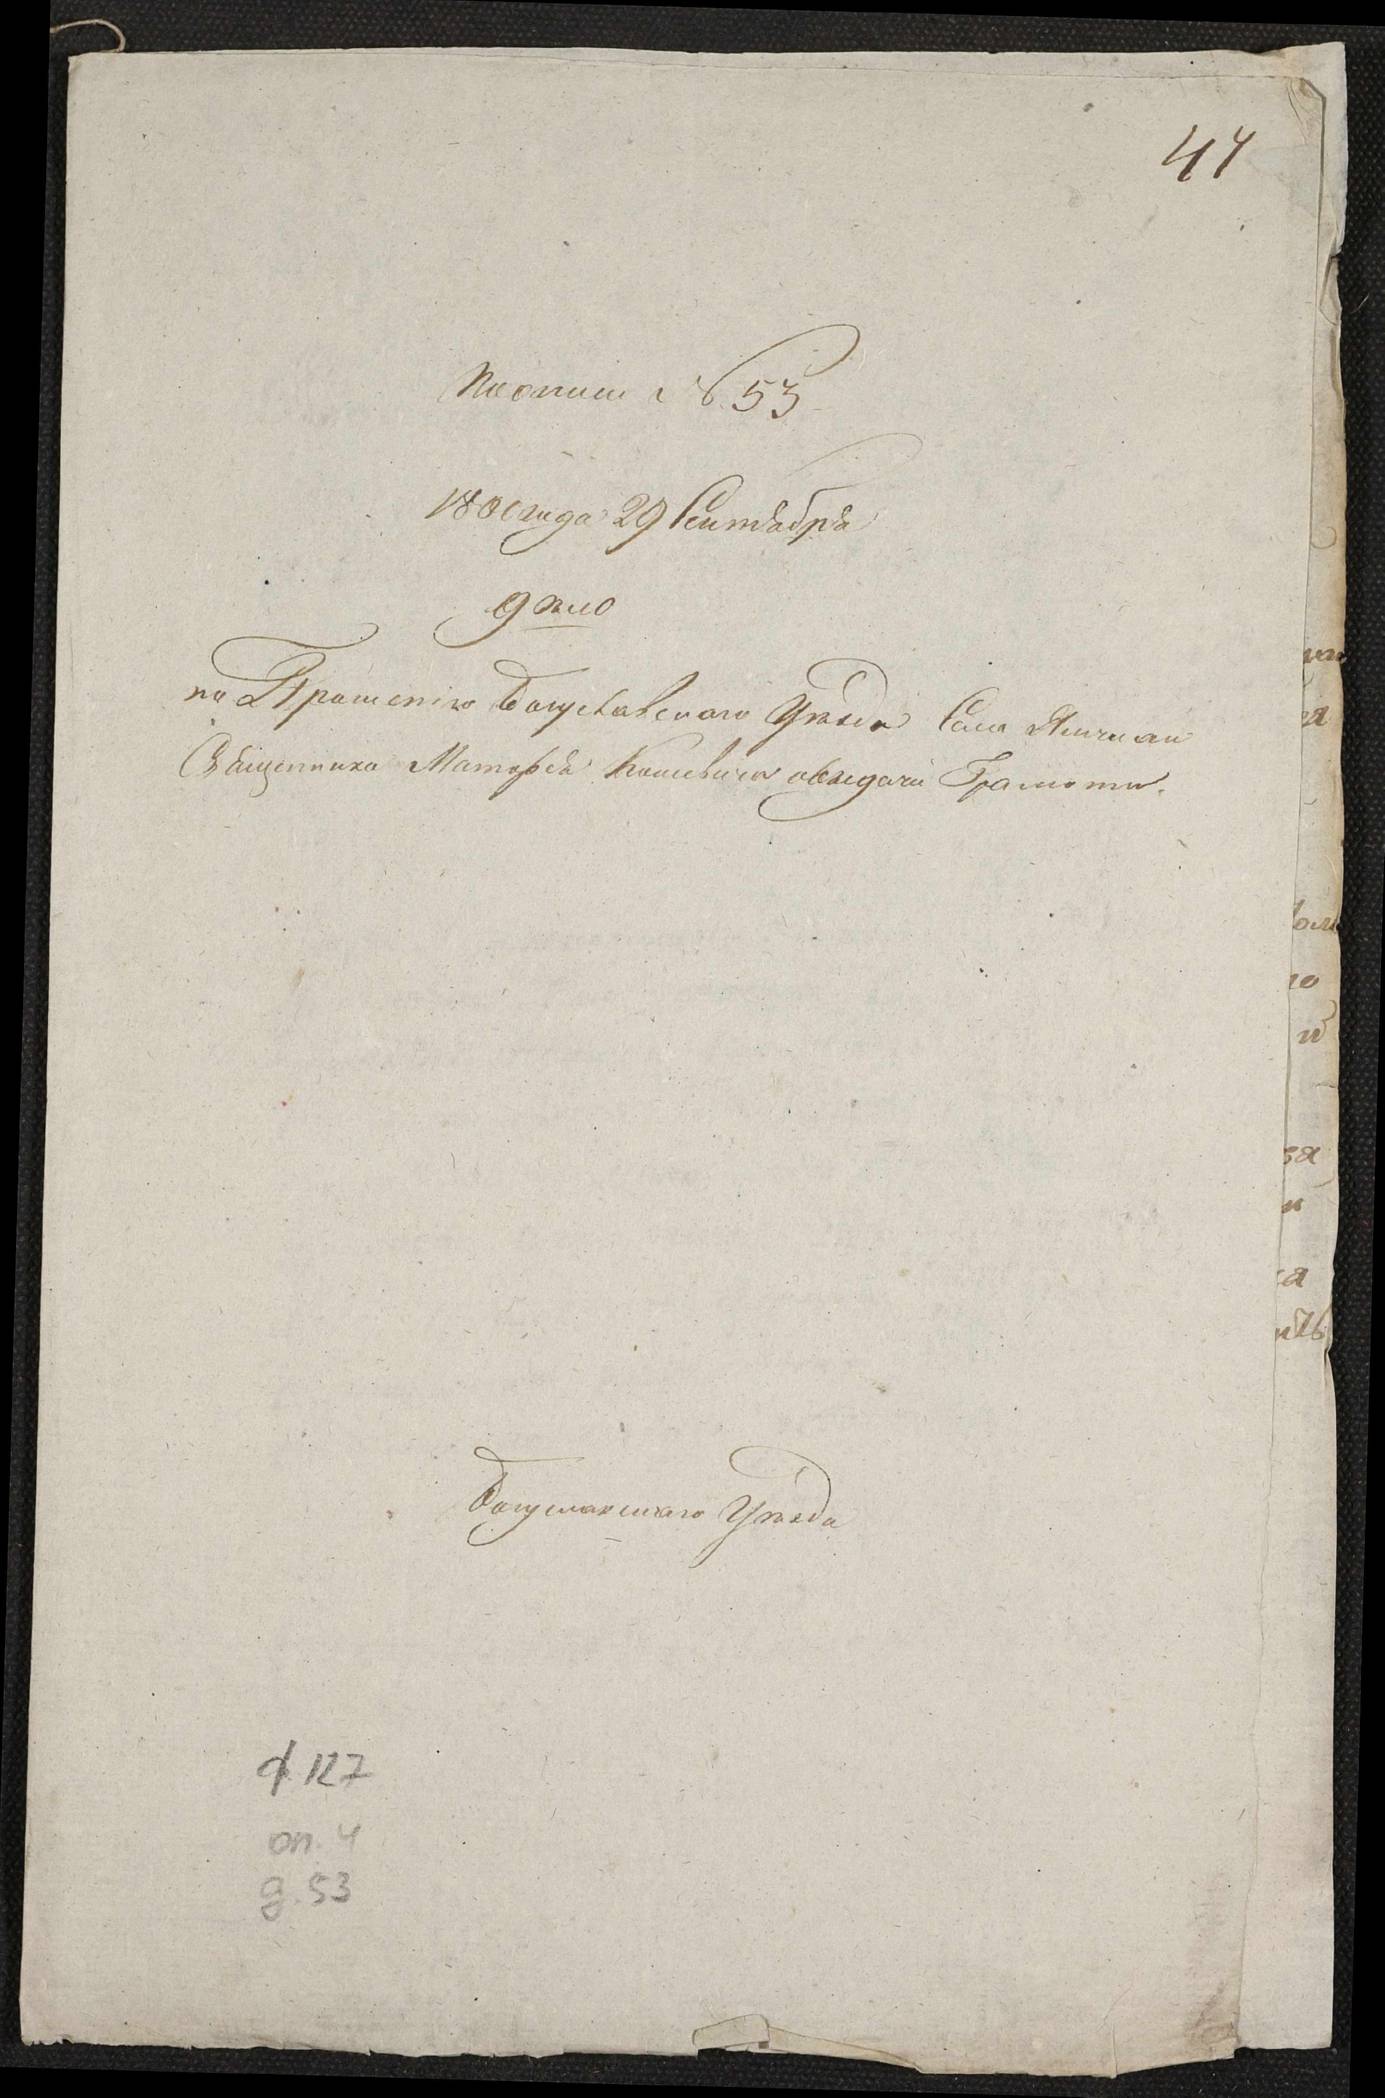 47
По описи № 53
180[?] года 29 Сентября
Дѣло
по Прошенію Богуславскаго Уѣзда Села
Священника Матфея о выдачи Грамоты.
Богуславскаго Уѣзда
ф. 127
оп. 4
д. 53